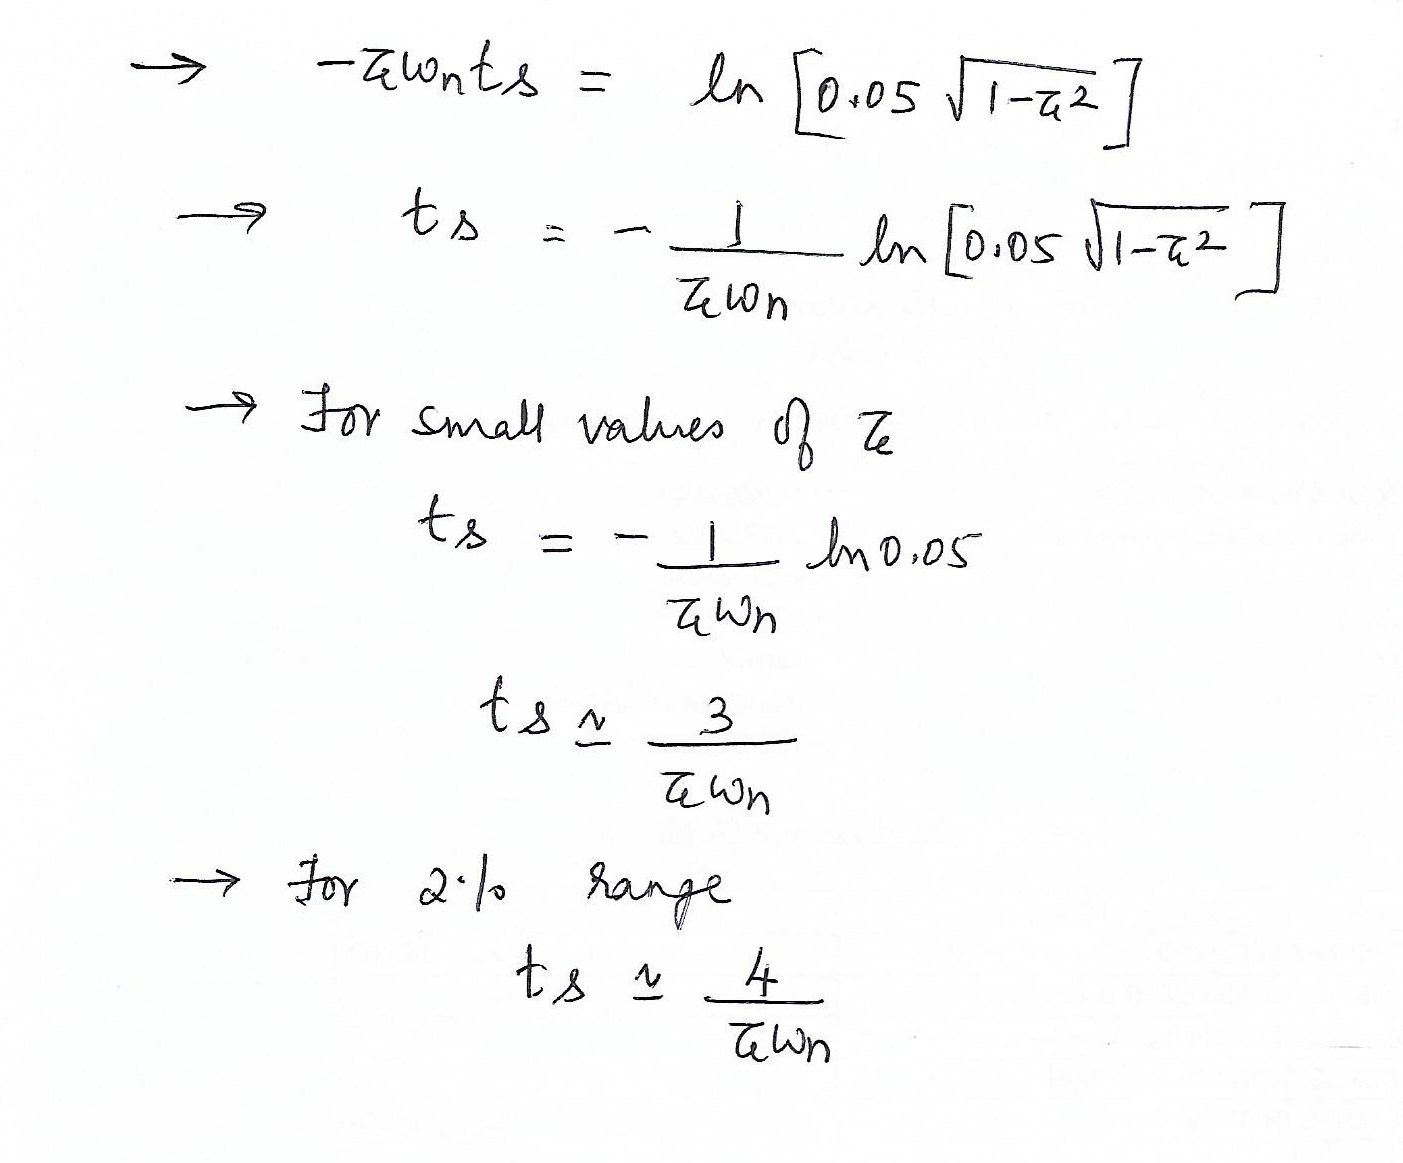 → -ξωnts = ln [0.05 √1-ξ2]
→ ts = - 1/ξωn ln [0.05 √1-ξ2]
→ For small values of ξ
ts = - 1/ξωn ln 0.05
ts ≃ 3/ξωn
→ For 2% range
ts ≃ 4/ξωn